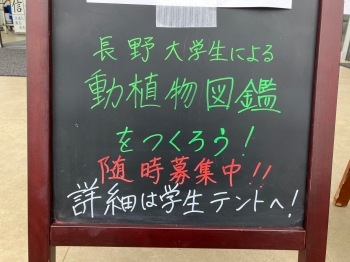 信
長野大学生による
動植物図鑑
をつくろう!
随時募集中!!
詳細は学生テントへ!